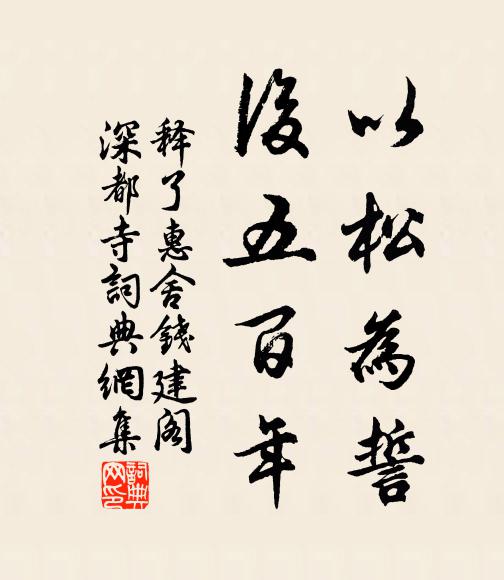 以松為誓
後五百年
释了惠舍錢建阁
深都寺詞典網集
詞典网印